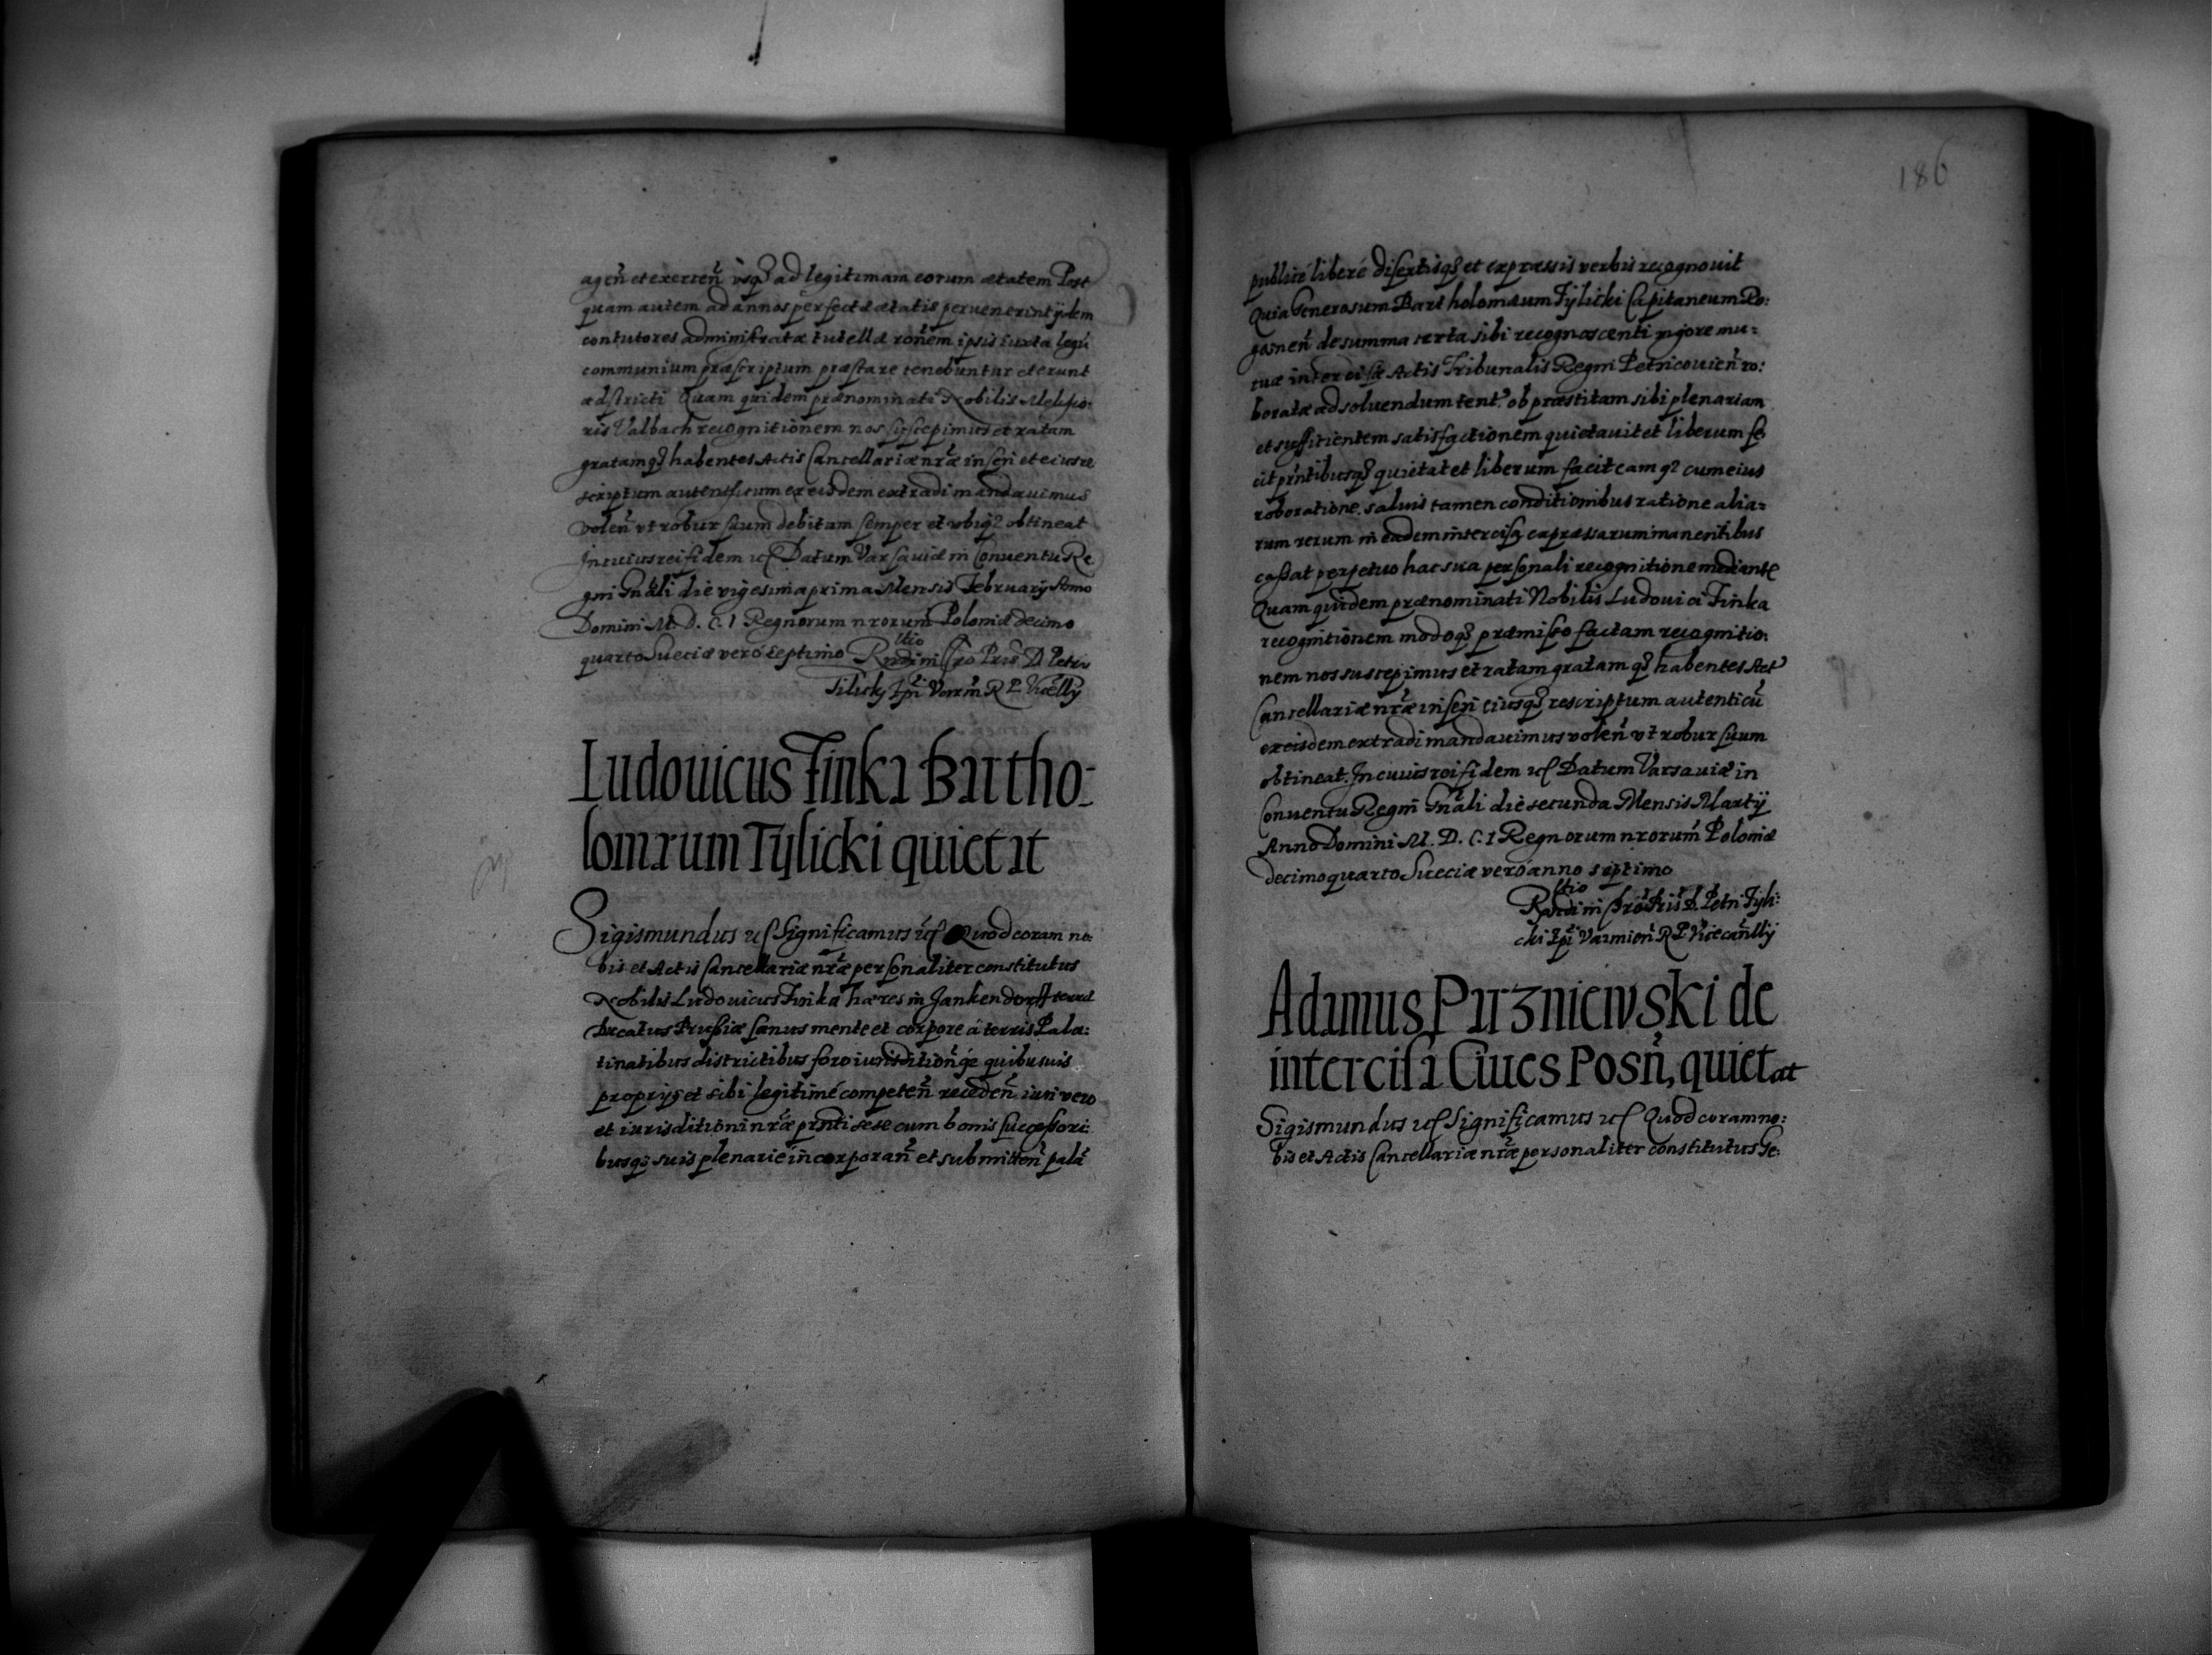 agen̄ et exercen̄ usq₃ ad legitimam eorum ætatem Post
quam autem ad annos perfectæ ætatis pervenerint ijdem
contutores administratæ tutellæ ron̄em ipsis iuxta legū
communium præscriptum præstare tenebuntur et erunt
adstricti Quam quidem prænominati Nobilis Melchio:
ris Valbach recognitionem nos suscepimus et ratam
gratamq₃ habentes Actis Cancellariæ nr̄æ inseri et eius re
scriptum autenticum ex eisdem extradi mandavimus
volen̄ vt robur suum debitum semper et vbiq₃ obtineat
In cuius rei fidem etc Datum Varsaviæ in Conventu Re
gni Gn̄ali die vigesima prima Mensis February Anno
Domini M. D. C. I Regnorum nrorum Poloniæ decimo
quarto Sueciæ vero septimo
Tilicky Ep̄i Varm̄ R P Vicelly
Ludouicus Finka Bartho-
lomæum Tylicki quietat
Sigismundus etc Significamus etc Quod coram no:
bis et Actis Cancellariæ nr̄æ personaliter constitutus
Nobilis Ludovicus Finka hæres in Jankendorff terræ
Ducatus Prussiæ sanus mente et corpore á terris Pala:
tinatibus districtibus foro iurisdition̄ ge quibusuis
proprijs et sibi legitimé competen̄ receden̄ iuri vero
et iurisditioni nr̄æ pr̄nti sese cum bonis successori:
busq₃ suis plenarie incorporan̄ et submitten̄ palā
186
publicé liberé disertisq₃ et expressis verbis recognovit
Quia Generosum Bartholomæum Tylicki Capitaneum Po:
gosnen̄ de summa certa sibi recognoscenti vigore mu:
tuæ intercisæ Actis Tribunalis Regni Petricovien̄ ro:
boratæ ad solvendum tent. ob præstitam sibi plenariam
et sufficientem satisfactionem quietavit et liberum fe
cit pr̄ntibusq₃ quietat et liberum facit eamq₃ cum eius
roboratione, salvis tamen conditionibus ratione alia:
rum rerum in eadem intercisa expressarum manentibus
cassat perpetuo hac sua personali recognitione mediante
Quam quidem prænominati Nobilis Ludovici Finka
recognitionem modoq₃ præmisso factam recognitio:
nem nos suscepimus et ratam gratamq₃ habentes Act
Cancellariæ nr̄æ inseri eiusq₃ rescriptum autenticū
ex eisdem extradi mandavimus volen̄ vt robur suum
obtineat. In cuius rei fidem etc Datum Varsaviæ in
Conventu Regni Gn̄ali die secunda Mensis Martij
Anno Domini M. D. C. I Regnorum nrorum Poloniæ
decimo quarto Sueciæ vero anno septimo
cki Ep̄i Varmien̄ R P Vicecan̄lly
Adamus Parzniewski de
intercisa Ciues Posn̄, quietat
Sigismundus etc Significamus etc Quod coram no:
bis et Actis Cancellariæ nr̄æ personaliter constitutus Ge: